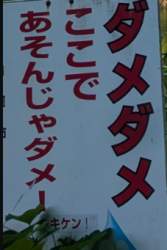 ダメダメ
ここで
あそんじゃダメ!
キケン!